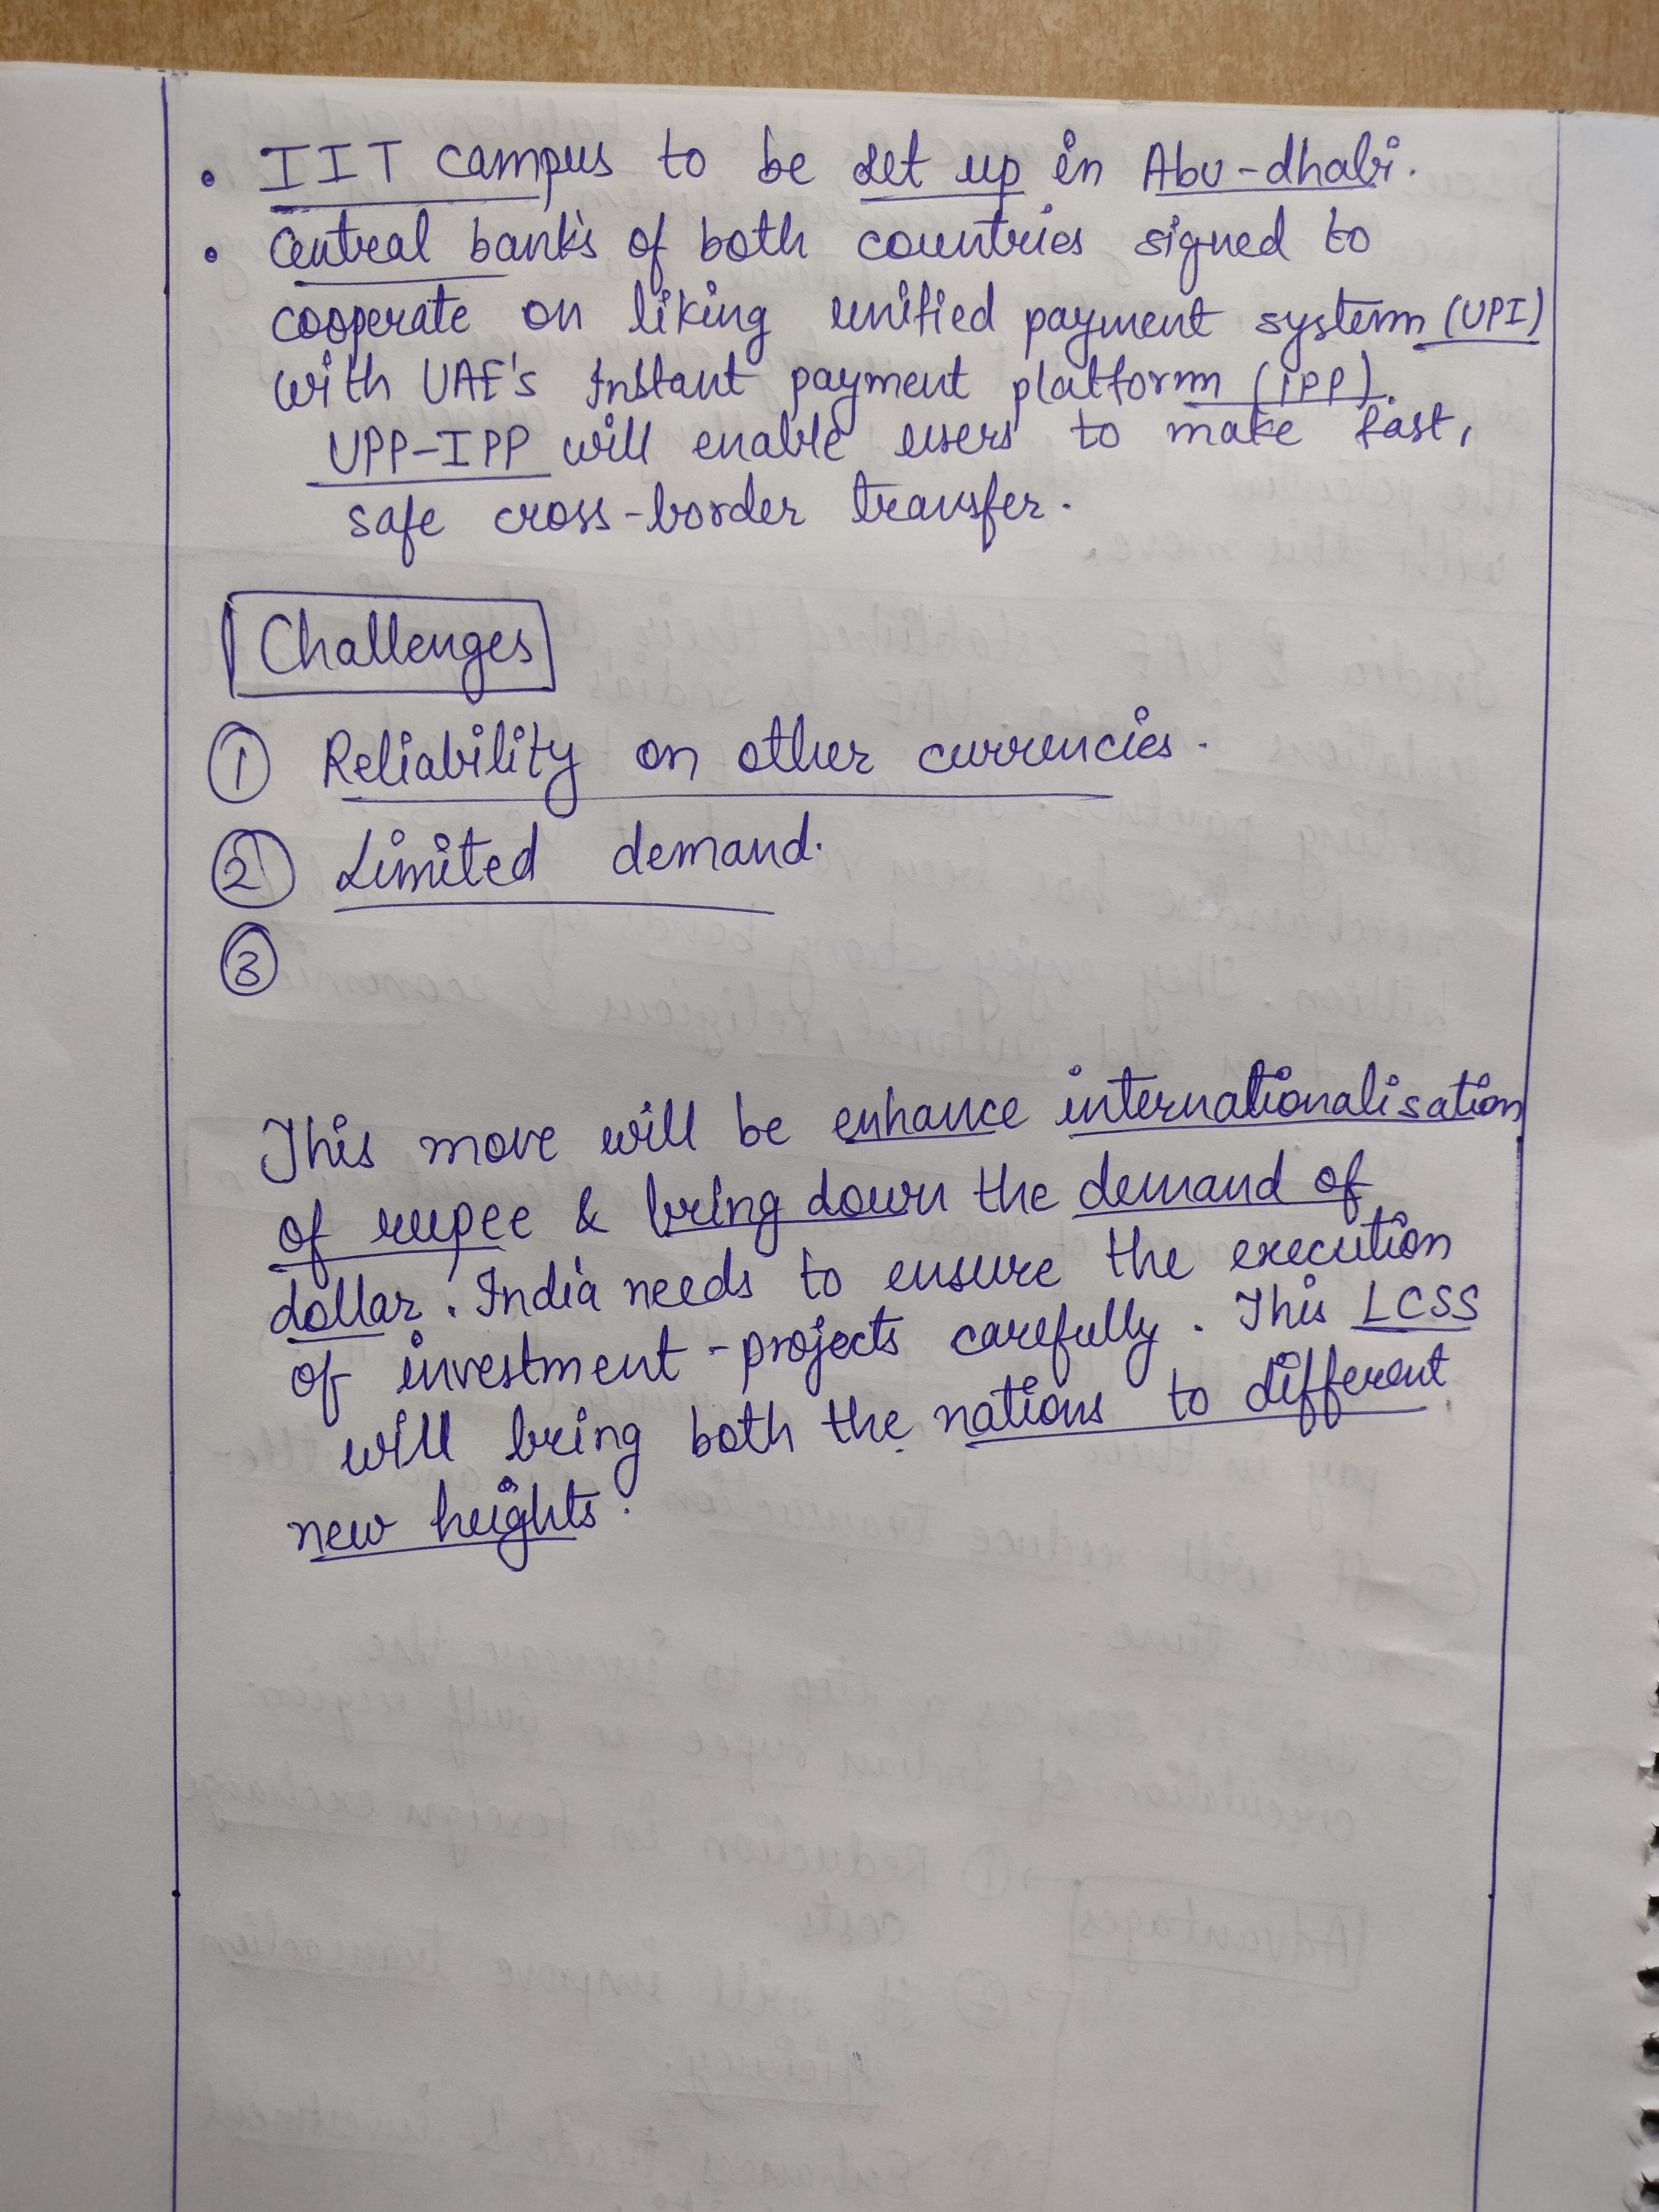 • IIT campus to be set up in Abu-dhabi.
• Central banks of both countries signed to
cooperate on liking unified payment system (UPI)
with UAE's Instant payment platform (IPP).
UPP-IPP will enable users to make fast,
safe cross-border transfer.
Challenges
① Reliability on other currencies.
② Limited demand.
③
This move will be enhance internationalisation
of rupee & bring down the demand of
dollar. India needs to ensure the execution
of investment-projects carefully. This LCSS
will bring both the nations to different
new heights.